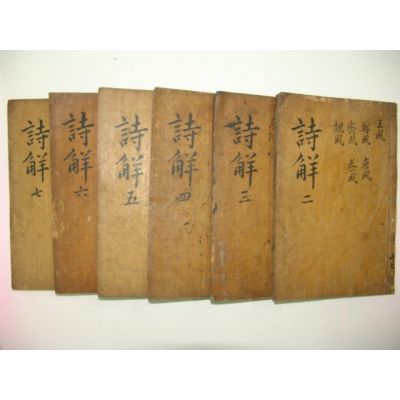 王風
鄭風 唐風
齊風 秦風
魏風
詩解 二
詩解 三
詩解 四
詩解 五
詩解 六
詩解 七